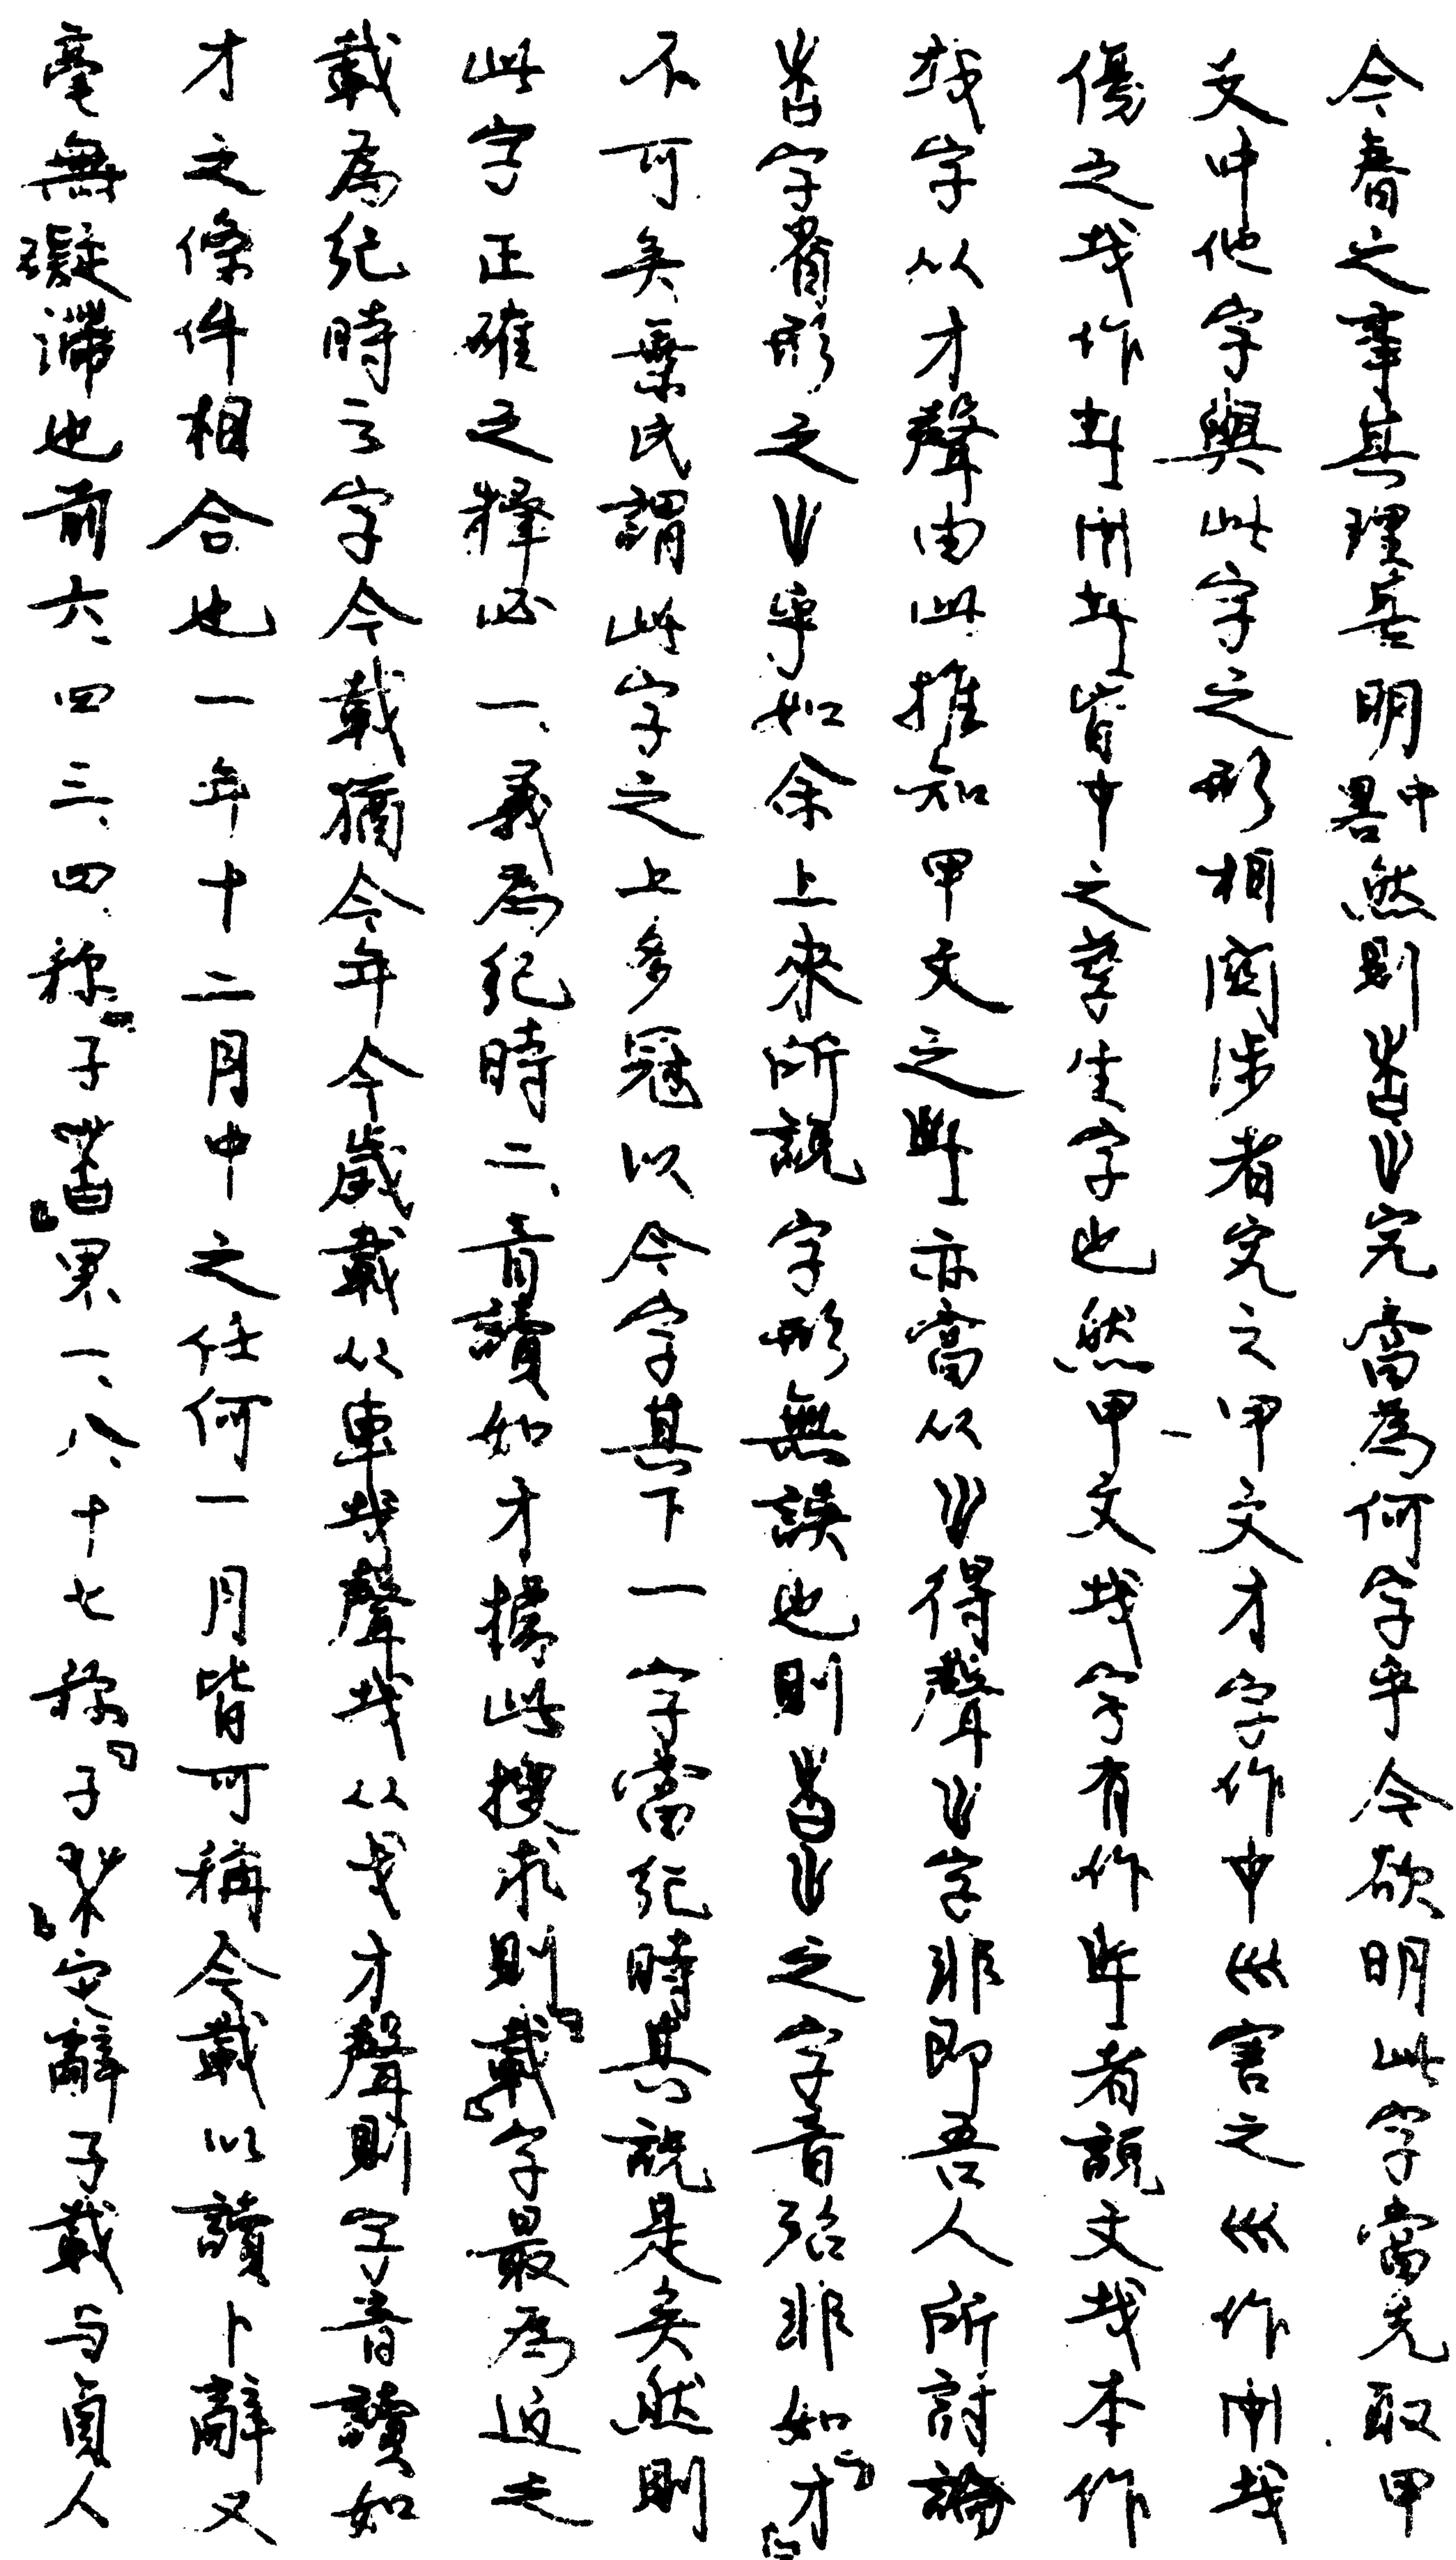 今春之事其理甚明中畧然則究當為何字乎今欲明此字當先取甲
文中他字與此字之形相關涉者究之甲文才字作巛害之巛作𢦏
傷之𢦏作皆才之孳生字也然甲文𢦏字有作者說文𢦏本作
𢦏字从才聲由此推知甲文之亦當从得聲字非即吾人所討論
字省形之乎如余上來所說字形無誤也則之字音殆非如「才」
不可矣葉氏謂此字之上多冠以今字其下一字當紀時其說是矣然則
此字正確之釋必一、義為紀時二、音讀如才據此搜求則「載」字最為近之
載為紀時之字今載猶今年今歲載从車𢦏聲𢦏从戈才聲則字音讀如
才之條件相合也一年十二月中之任何一月皆可稱今載以讀卜辭又
毫無礙滯也前六、四三、四、稱「子」罘、一、八、十七稱「子」安辭子載与貞人